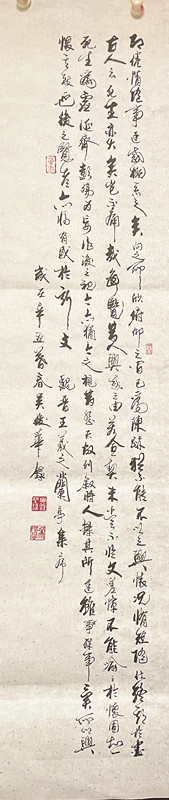 倦情隨事遷感慨系之矣向之所欣俯仰之間已為陳跡猶不能不以之興懷況脩短隨化終期於盡
古人云死生亦大矣豈不痛哉每覽昔人興感之由若合一契未嘗不臨文嗟悼不能喻之於懷固知一
死生為虛誕齊彭殤為妄作後之視今亦猶今之視昔悲夫故列敘時人錄其所述雖世殊事異所以興
懷其致一也後之覽者亦將有感於斯文 晉王羲之蘭亭集序
歲在辛丑暮春吳華錄